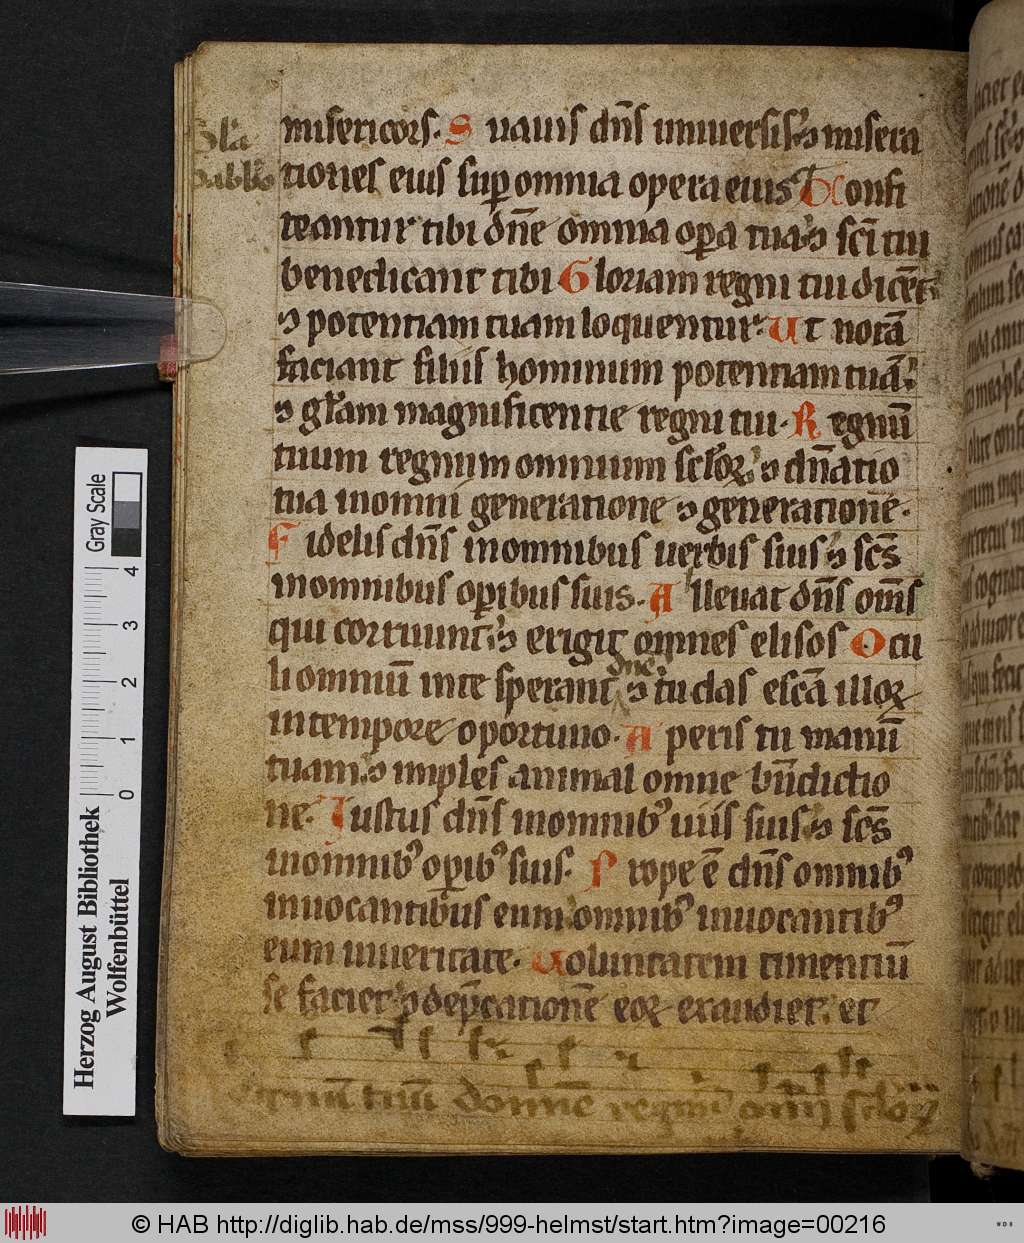 misericors. Suauis dn̄s uniuersis ⁊ misera
tiones eius suꝑ omnia opera eius Confi
teantur tibi dn̄e omnia oꝑa tua ⁊ sc̄i tui
benedicant tibi Gloriam regni tui dicēt
⁊ potentiam tuam loquentur. Ut notā
faciant filiis hominum potentiam tuā
⁊ gl̄am magnificentie regni tui. Regnū
tuum regnum omnium scl̄oꝝ ⁊ dn̄atio
tua inomni generatione ⁊ generationē.
Fidelis dn̄s inomnibus uerbis suis ⁊ sc̄s
inomnibus oꝑibus suis. Alleuat dn̄s om̄s
qui corruunt ⁊ erigit omnes elisos Ocu
dn̄e
li omniū inte sperant ⁊ tu das escā illoꝝ
intempore oportuno. Aperis tu manū
tuam ⁊ imples animal omne bn̄dictio
ne. Iustus dn̄s inomnibꝰ uiis suis ⁊ sc̄s
inomnibꝰ oꝑibꝰ suis. Prope ē dn̄s omnibꝰ
inuocantibus eum omnibꝰ inuocantibꝰ
eum inueritate. Uoluntatem timentiū
se faciet ⁊ dep̄cationē eoꝝ exaudiet et
tuū domine regnū om̄i scl̄oꝝ
Gray Scale
4
3
2
1
0
Herzog August Bibliothek
Wolfenbüttel
© HAB http://diglib.hab.de/mss/999-helmst/start.htm?image=00216